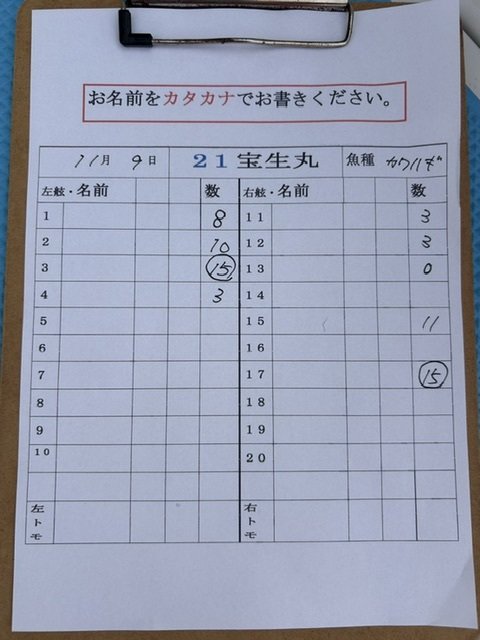 お名前をカタカナでお書きください。
11月 9日 21宝生丸 魚種 カワハギ
左舷・名前 数 右舷・名前 数
1 8 11 3
2 10 12 3
3 15 13 0
4 3 14
5 15 11
6 16
7 17 15
8 18
9 19
10 20
左トモ 右トモ